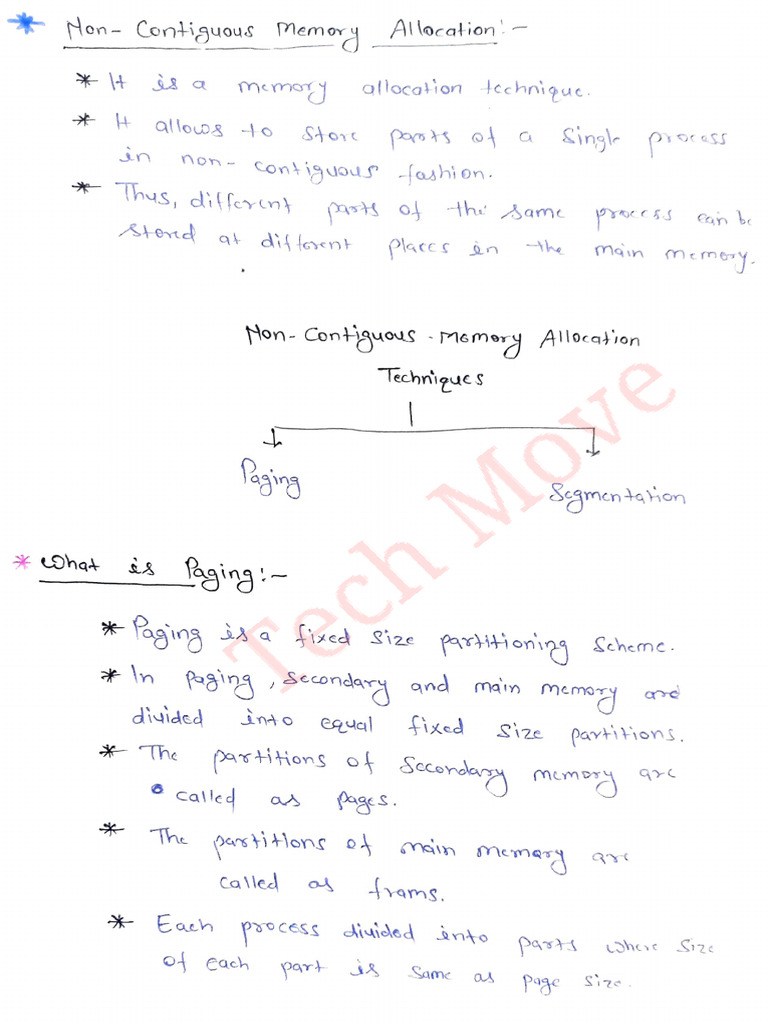 * Non-Contiguous Memory Allocation:-
* It is a memory allocation technique.
* It allows to store parts of a single process
in non-contiguous fashion.
* Thus, different parts of the same process can be
stored at different places in the main memory.
Non-Contiguous-Memory Allocation
Techniques
Paging
Segmentation
Tech Move
* What is Paging:-
* Paging is a fixed size partitioning scheme.
* In paging, secondary and main memory are
divided into equal fixed size partitions.
* The partitions of secondary memory are
called as pages.
* The partitions of main memory are
called as frams.
* Each process divided into parts where size
of each part is same as page size.